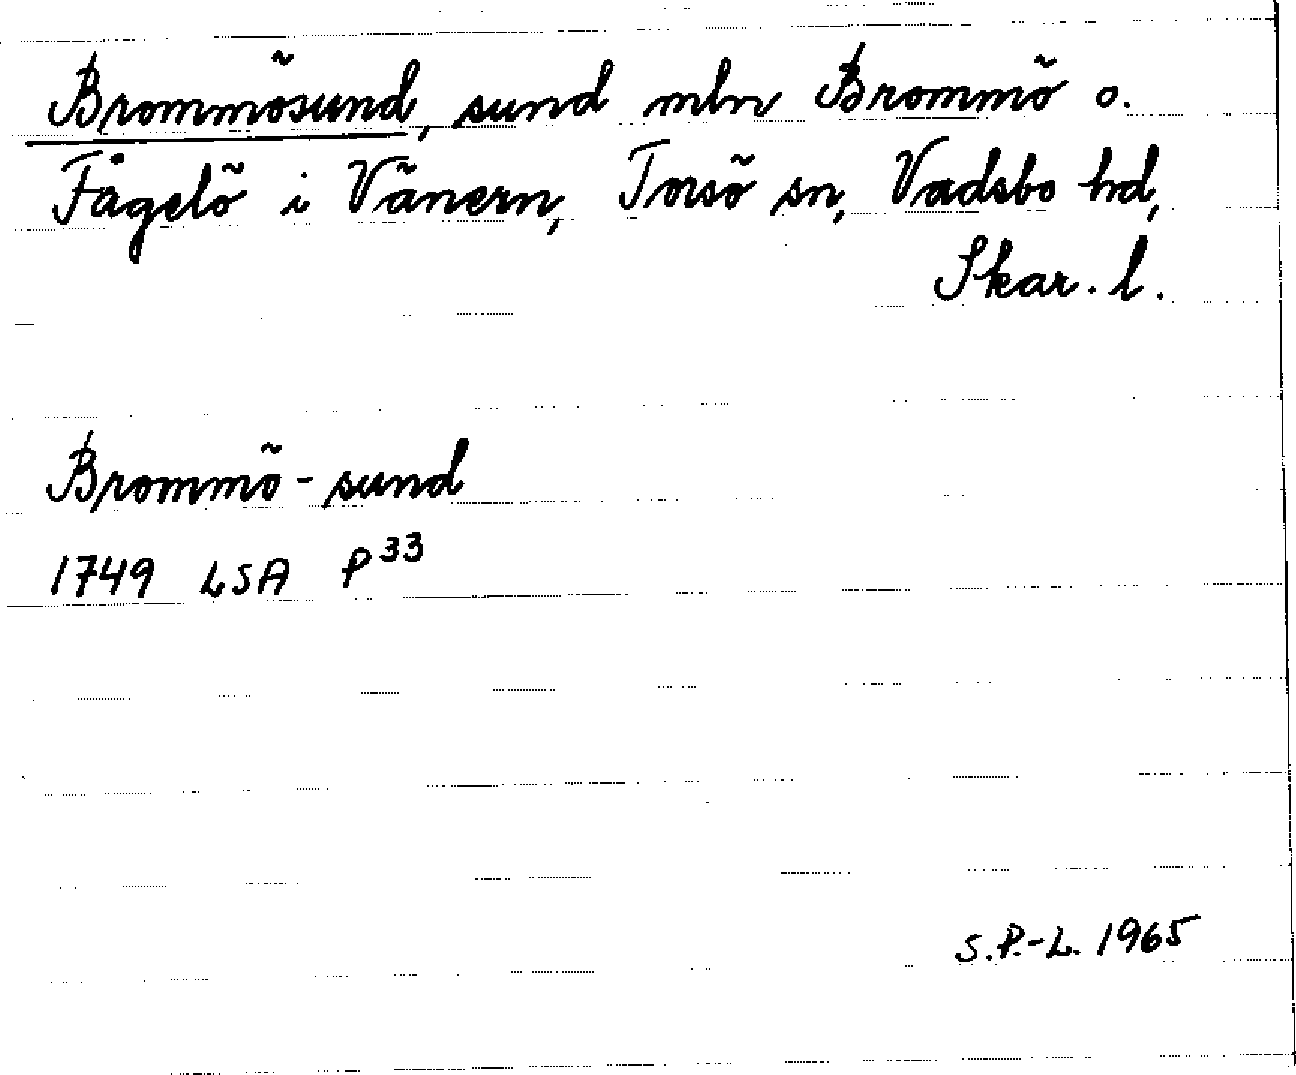 Brommösund, sund mln Brommö o.
Fågelö i Vänern, Torsö sn, Vadsbo hd,
Skar. l.
Brommö-sund
1749 LSA P33
S.P.-L. 1965